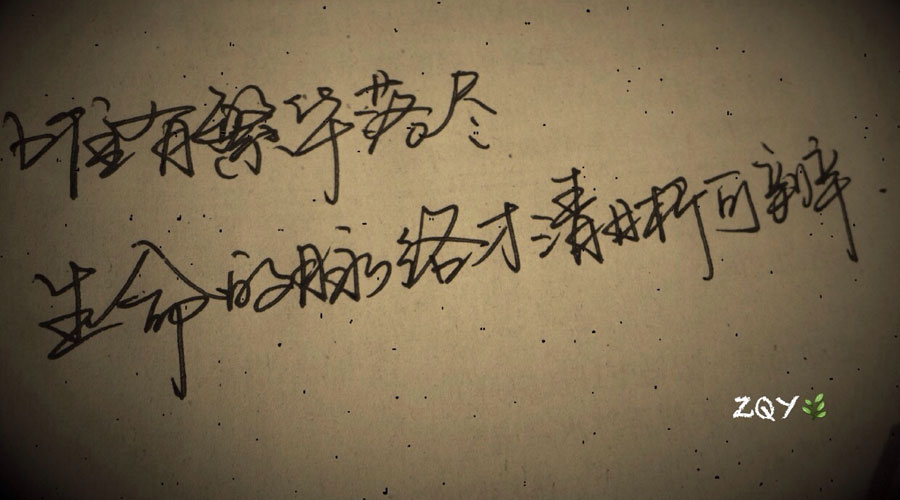 唯有繁华落尽
生命的脉络才清晰可辨.
ZQY🌿